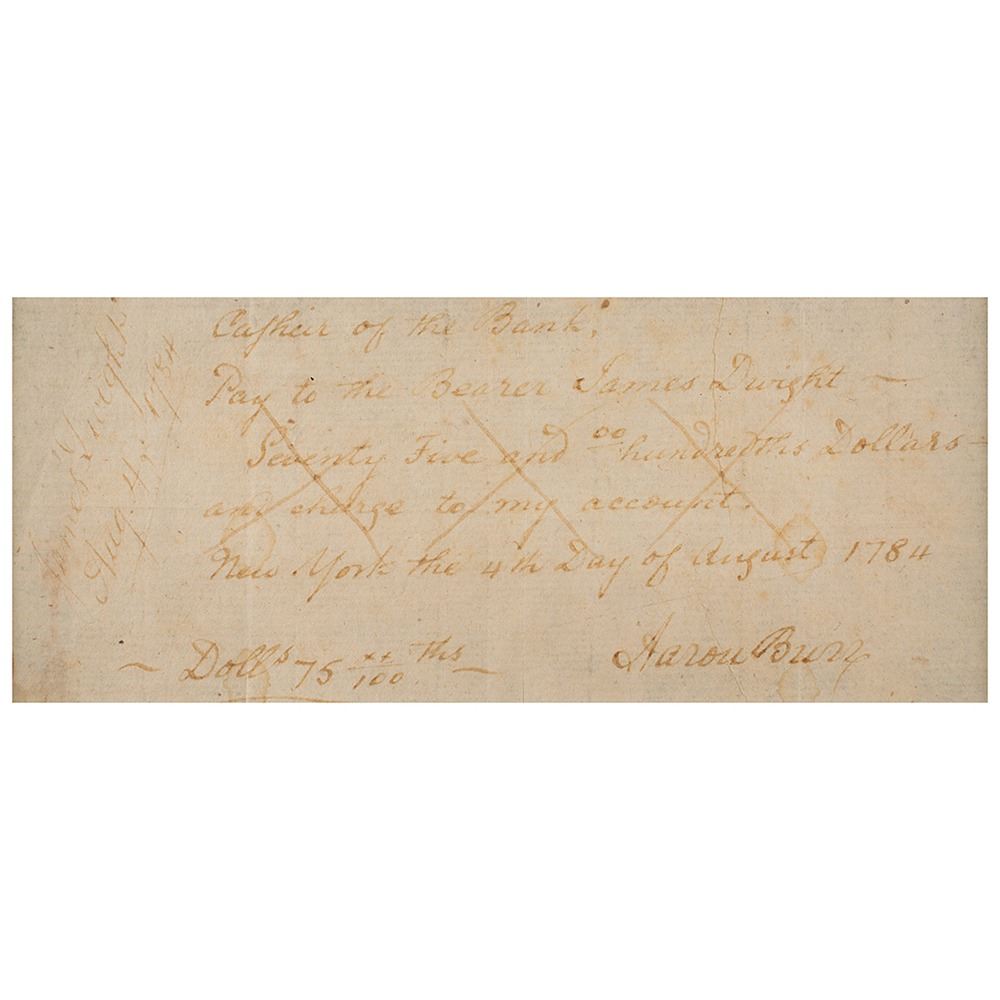 Casheir of the Bank,
Pay to the Bearer James Dwight —
Seventy Five and 00 hundredths Dollars —
and charge to my account.
New York the 4th Day of August 1784
— Dolls 75 xx/100 ths —
Aaron Burr
James Dwight
Aug. 4, 1784